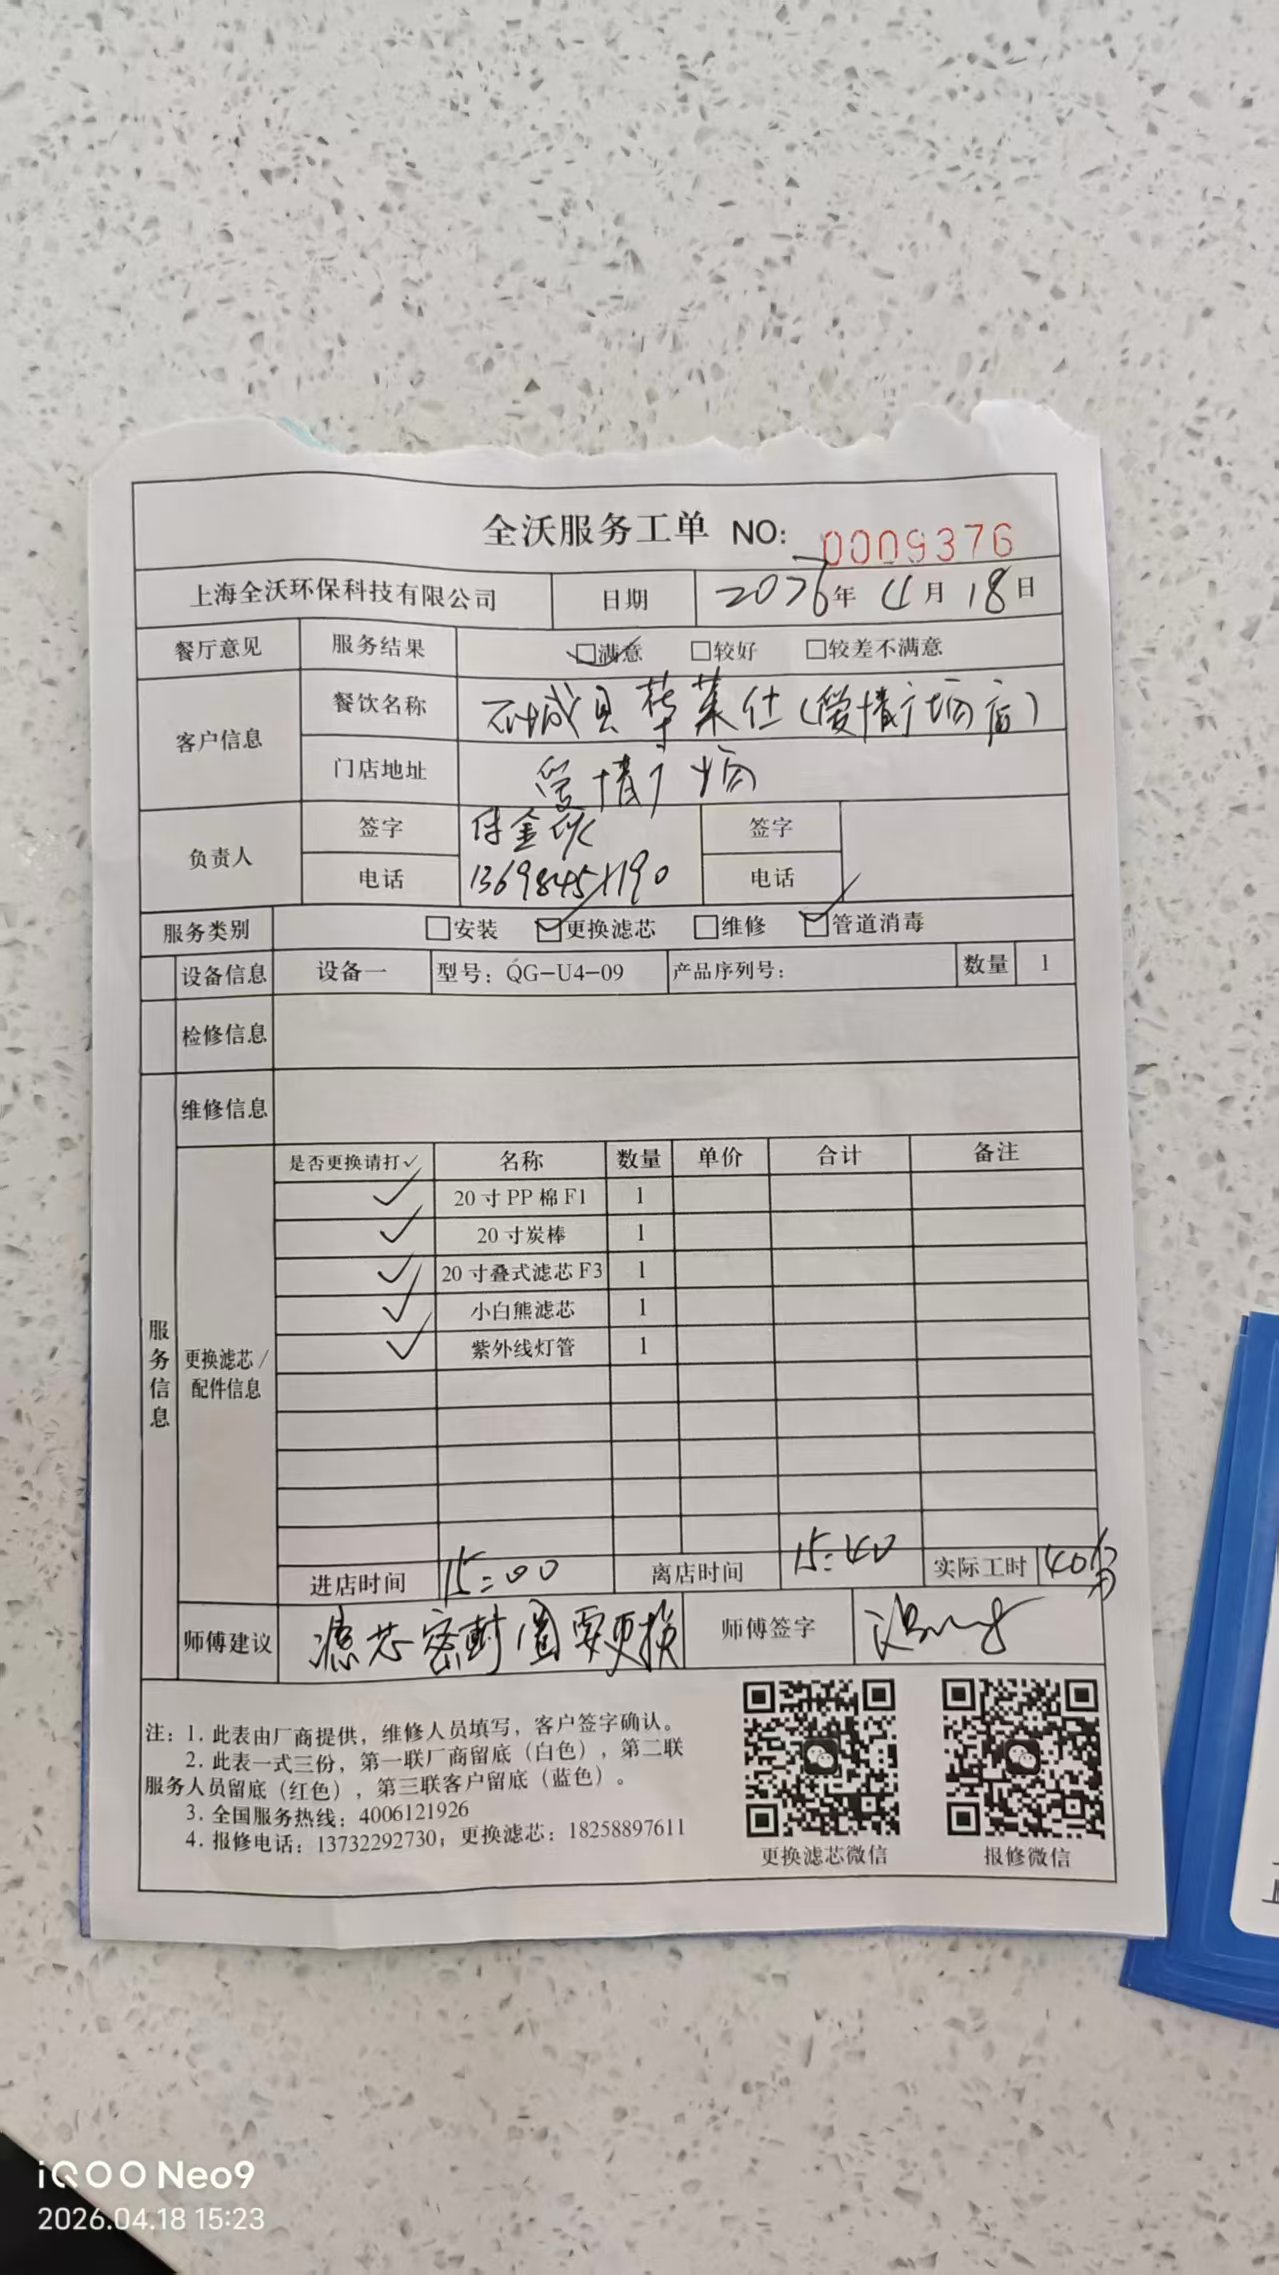 全沃服务工单 NO: 0009376
上海全沃环保科技有限公司 日期 2026年 4月 18日
餐厅意见 服务结果 □满意 □较好 □较差不满意
客户信息 餐饮名称 石城县华莱仕(爱情广场店)
门店地址 爱情广场
负责人 签字 签字
电话 电话
服务类别 □安装 □更换滤芯 □维修 □管道消毒
设备信息 设备一 型号: QG-U4-09 产品序列号: 数量 1
检修信息
维修信息
服务信息
更换滤芯/
配件信息
是否更换请打✓ 名称 数量 单价 合计 备注
✓ 20寸PP棉F1 1
✓ 20寸炭棒 1
✓ 20寸叠式滤芯F3 1
✓ 小白熊滤芯 1
✓ 紫外线灯管 1
进店时间 15:00 离店时间 15:40 实际工时 40分
师傅建议 滤芯密封圈要更换 师傅签字
注: 1. 此表由厂商提供, 维修人员填写, 客户签字确认。
2. 此表一式三份, 第一联厂商留底(白色), 第二联
服务人员留底(红色), 第三联客户留底(蓝色)。
3. 全国服务热线: 4006121926
4. 报修电话: 13732292730; 更换滤芯: 18258897611
更换滤芯微信 报修微信
iQOO Neo9
2026.04.18 15:23